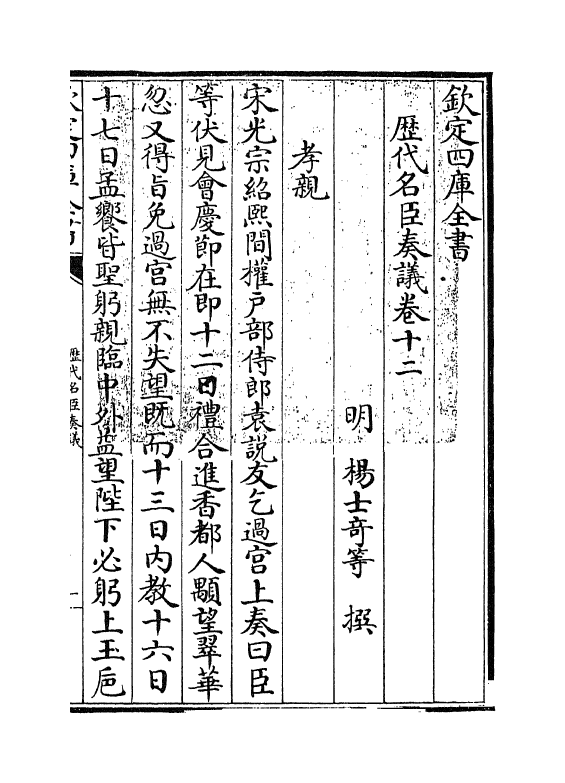 欽定四庫全書
歴代名臣奏議卷十二
明 楊士奇等 撰
孝親
宋光宗紹熙間權户部侍郎袁説友乞過宫上奏曰臣
等伏見會慶節在即十二日禮合進香都人顒望翠華
忽又得旨免過宫無不失望既而十三日内教十六日
十七日孟饗皆聖躬親臨中外益望陛下必躬上玉巵
歴代名臣奏議
一